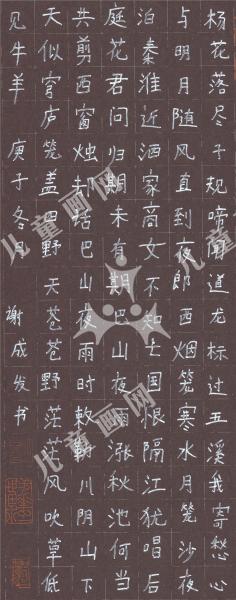 杨花落尽子规啼闻道龙标过五溪我寄愁心
与明月随风直到夜郎西烟笼寒水月笼沙夜
泊秦淮近酒家商女不知亡国恨隔江犹唱后
庭花君问归期未有期巴山夜雨涨秋池何当
共剪西窗烛却话巴山夜雨时敕勒川阴山下
天似穹庐笼盖四野天苍苍野茫茫风吹草低
见牛羊 庚子冬月 谢成发书
儿童画网
儿童画网
儿童画网
儿童画网